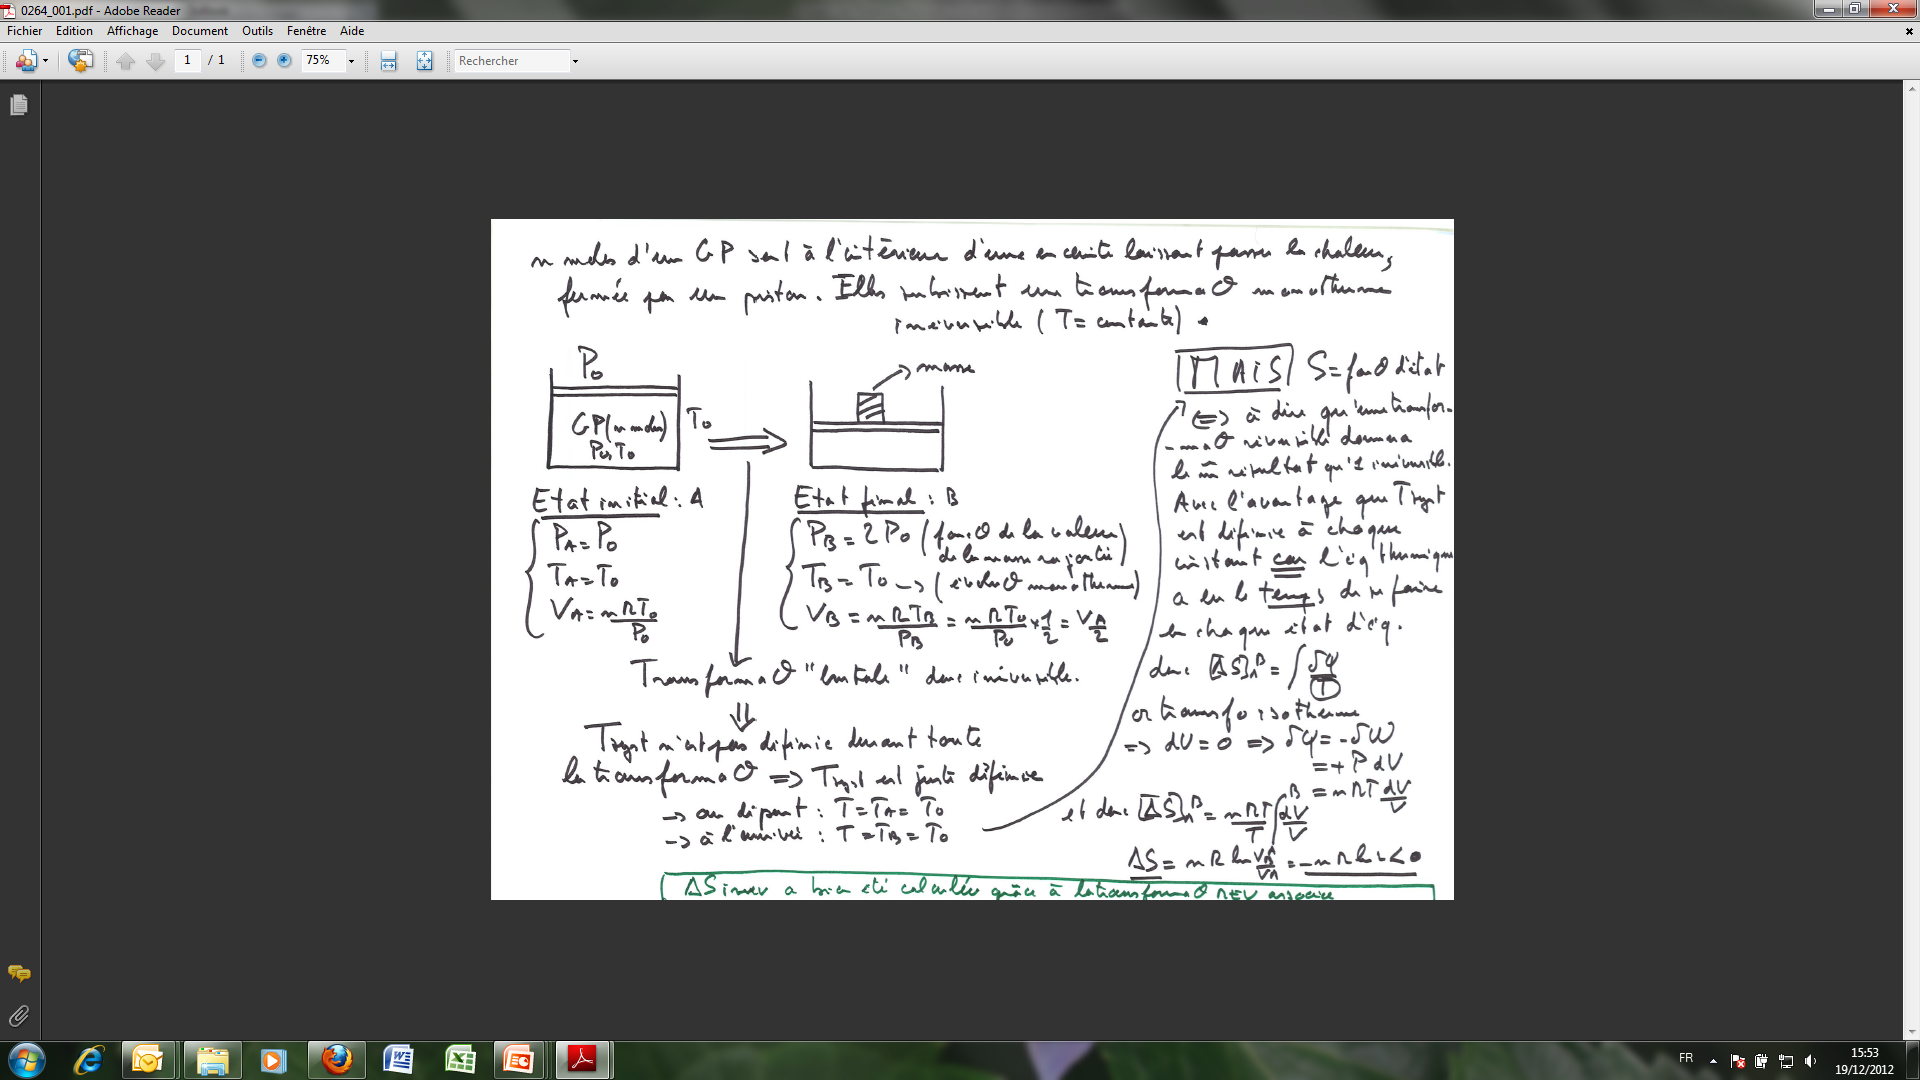 0264_001.pdf - Adobe Reader
Fichier Edition Affichage Document Outils Fenêtre Aide
1 / 1 75% Rechercher
n moles d'un GP sont à l'intérieur d'une enceinte laissant passer la chaleur,
fermée par un piston. Elles subissent une transformaθ monotherme
irréversible (T = constante).
P₀
GP (n moles)
P₀, T₀
T₀
masse
Etat initial : A
P_A = P₀
T_A = T₀
V_A = nRT₀/P₀
Etat final : B
P_B = 2P₀ (foncθ de la valeur
de la masse rajoutée)
T_B = T₀ → (évoluθ monotherme)
V_B = nRT_B/P_B = nRT₀/P₀ × 1/2 = V_A/2
Transformaθ "brutale" donc irréversible.
⇓
Tsyst n'est pas définie durant toute
la transformaθ ⇒ Tsyst est juste définie
→ au départ : T = T_A = T₀
→ à l'arrivée : T = T_B = T₀
MAIS S = foncθ d'état
⇔ à dire qu'une transfor-
-maθ réversible donnera
le m̄ résultat qu'1 irréversible.
Avec l'avantage que Tsyst
est définie à chaque
instant car l'éq thermique
a eu le temps de se faire
en chaque état d'éq.
donc [ΔS]_A^B = ∫ δQ/T
or transfo isotherme
⇒ dU = 0 ⇒ δQ = -δW
= + P dV
= nRT dV/V
et donc [ΔS]_A^B = nRT/T ∫_A^B dV/V
ΔS = nR ln V_B/V_A = -nR ln 2 < 0
ΔS irrev a bien été calculée grâce à la transformaθ REV associée
FR
15:53
19/12/2012